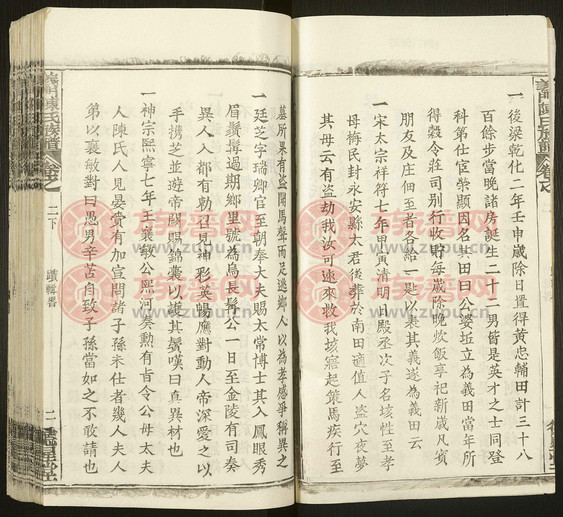 一後梁乾化二年壬申歲除日置得黃忠輔田計三十八
百餘步當晚諸房誕生二十二男皆是英才之士同登
科第仕宦榮顯因名其田曰公婆坵立為義田當年所
得穀令莊司別行收貯每歲除晚炊飯享祀新歲凡賓
朋友及庄佃至者各給一是以表其義遂為義田云
一宋太宗祥符七年甲寅清明日殿丞次子名垓性至孝
母梅氏封永安縣太君後葬於南田適值人盜穴夜夢
其母云有盜劫我汝可速來救我垓寤起策馬疾行至
墓所果有盜聞馬聲而足逃鄉人以為孝感爭稱異之
一廷芝字瑞卿官至朝奉大夫賜太常博士其人鳳眼秀
眉鬢鬚過期鄉里號為烏長髯公一日至金陵有司奏
異人入都有勅召見神彩英暢應對動人帝深愛之以
手攜芝並遊帝闕賜錦囊以護其鬚嘆曰真異材也
一神宗熙寧七年王襄敏公熙河奏勲有旨令公母太夫
人陳氏入見晏賞有加宣問諸子孫未仕者幾人夫人
第以襄敏對曰愚男辛苦自致子孫當如之不敢請也
義門陳氏族譜
卷之
二下
蹟輯畧
二
族普网
www.zupu.cn